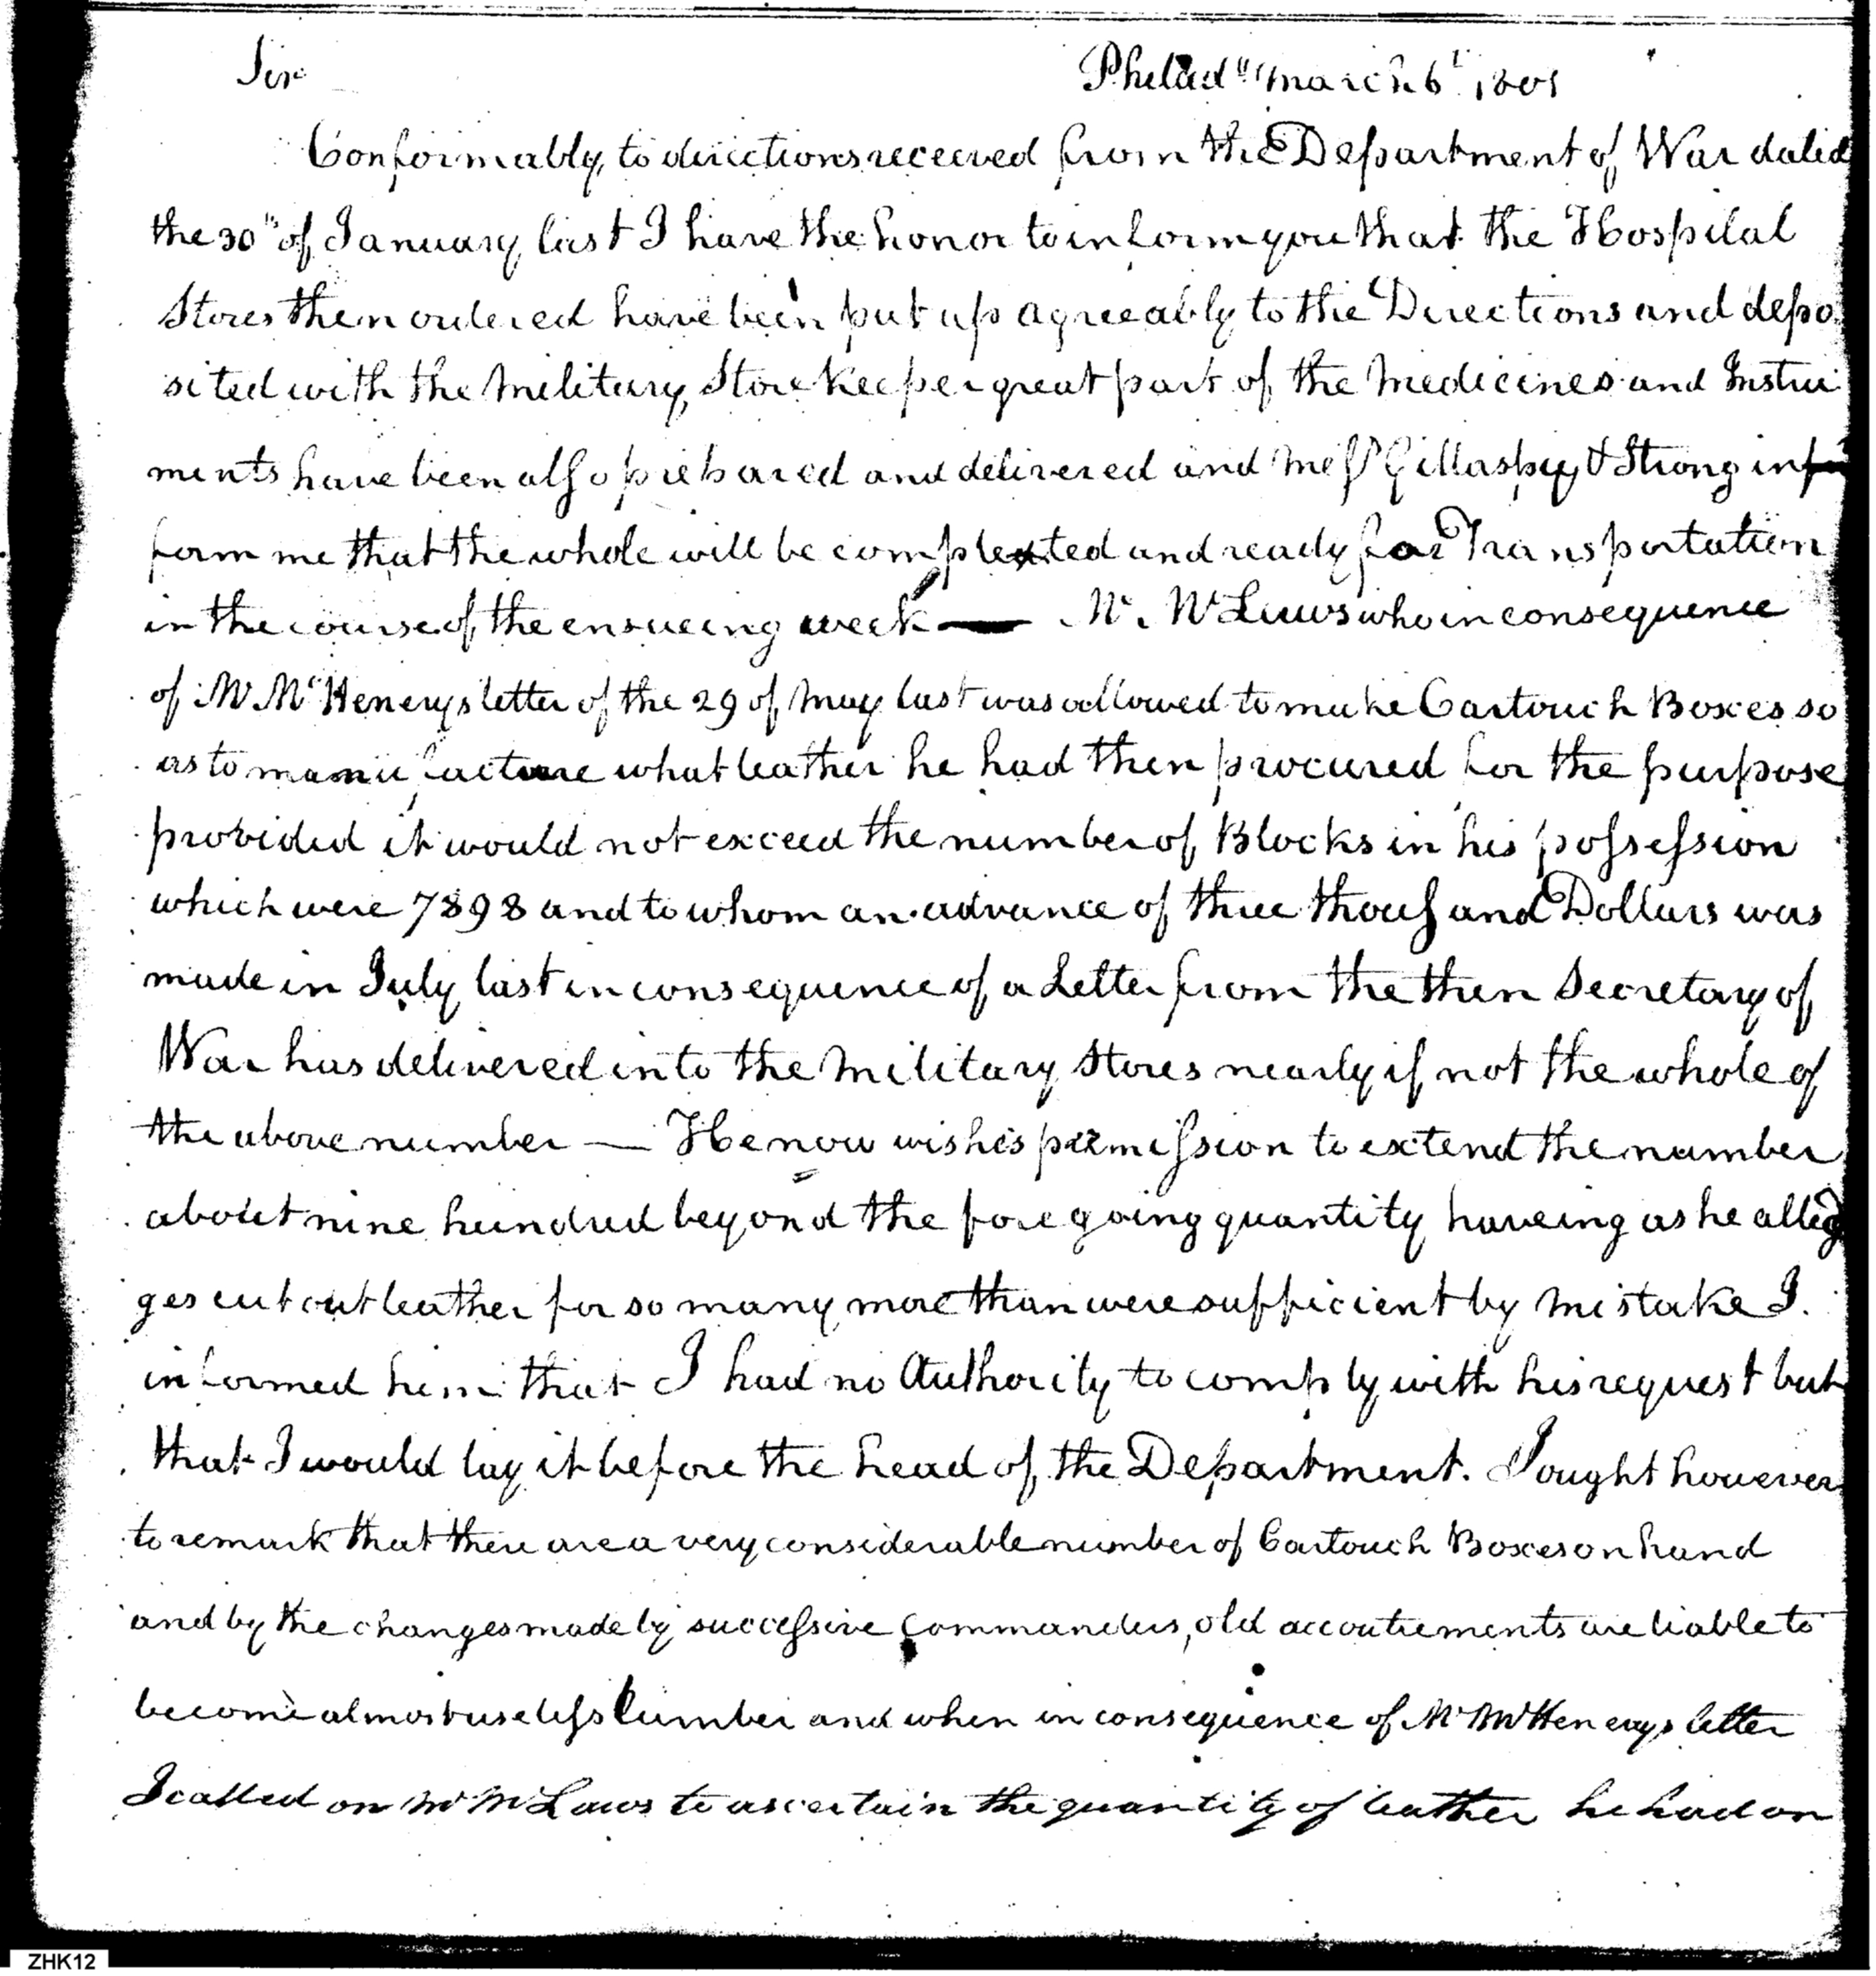 Sir
Philad" March 6t 1801
Conformably to directions received from the Department of War dated
the 30" of January last I have the honor to inform you that the Hospital
Stores then ordered have been put up agreeably to the Directions and depo
sited with the Military Store keeper great part of the Medicines and Instru
ments have been also prepared and delivered and Messrs Gillaspy & Strong in
form me that the whole will be completed and ready for Transportation
in the course of the ensueing week — Mr. McLaws who in consequence
of Mr McHenerys letter of the 29 of May last was allowed to make Cartouch Boxes so
as to manufacture what leather he had then procured for the purpose
provided it would not exceed the number of Blocks in his possession
which were 7898 and to whom an advance of three thousand Dollars was
made in July last in consequence of a Letter from the then Secretary of
War has delivered into the Military Stores nearly if not the whole of
the above number — He now wishes permission to extend the number
about nine hundred beyond the foregoing quantity haveing as he alleg
ges cut out leather for so many more than were sufficient by mistake I
informed him that I had no Authority to comply with his request but
that I would lay it before the head of the Department. I ought however
to remark that there are a very considerable number of Cartouch Boxes on hand
and by the changes made by successive Commanders, old accoutrements are liable to
become almost useless lumber and when in consequence of Mr McHenerys letter
I called on Mr McLaws to ascertain the quantity of leather he had on
ZHK12